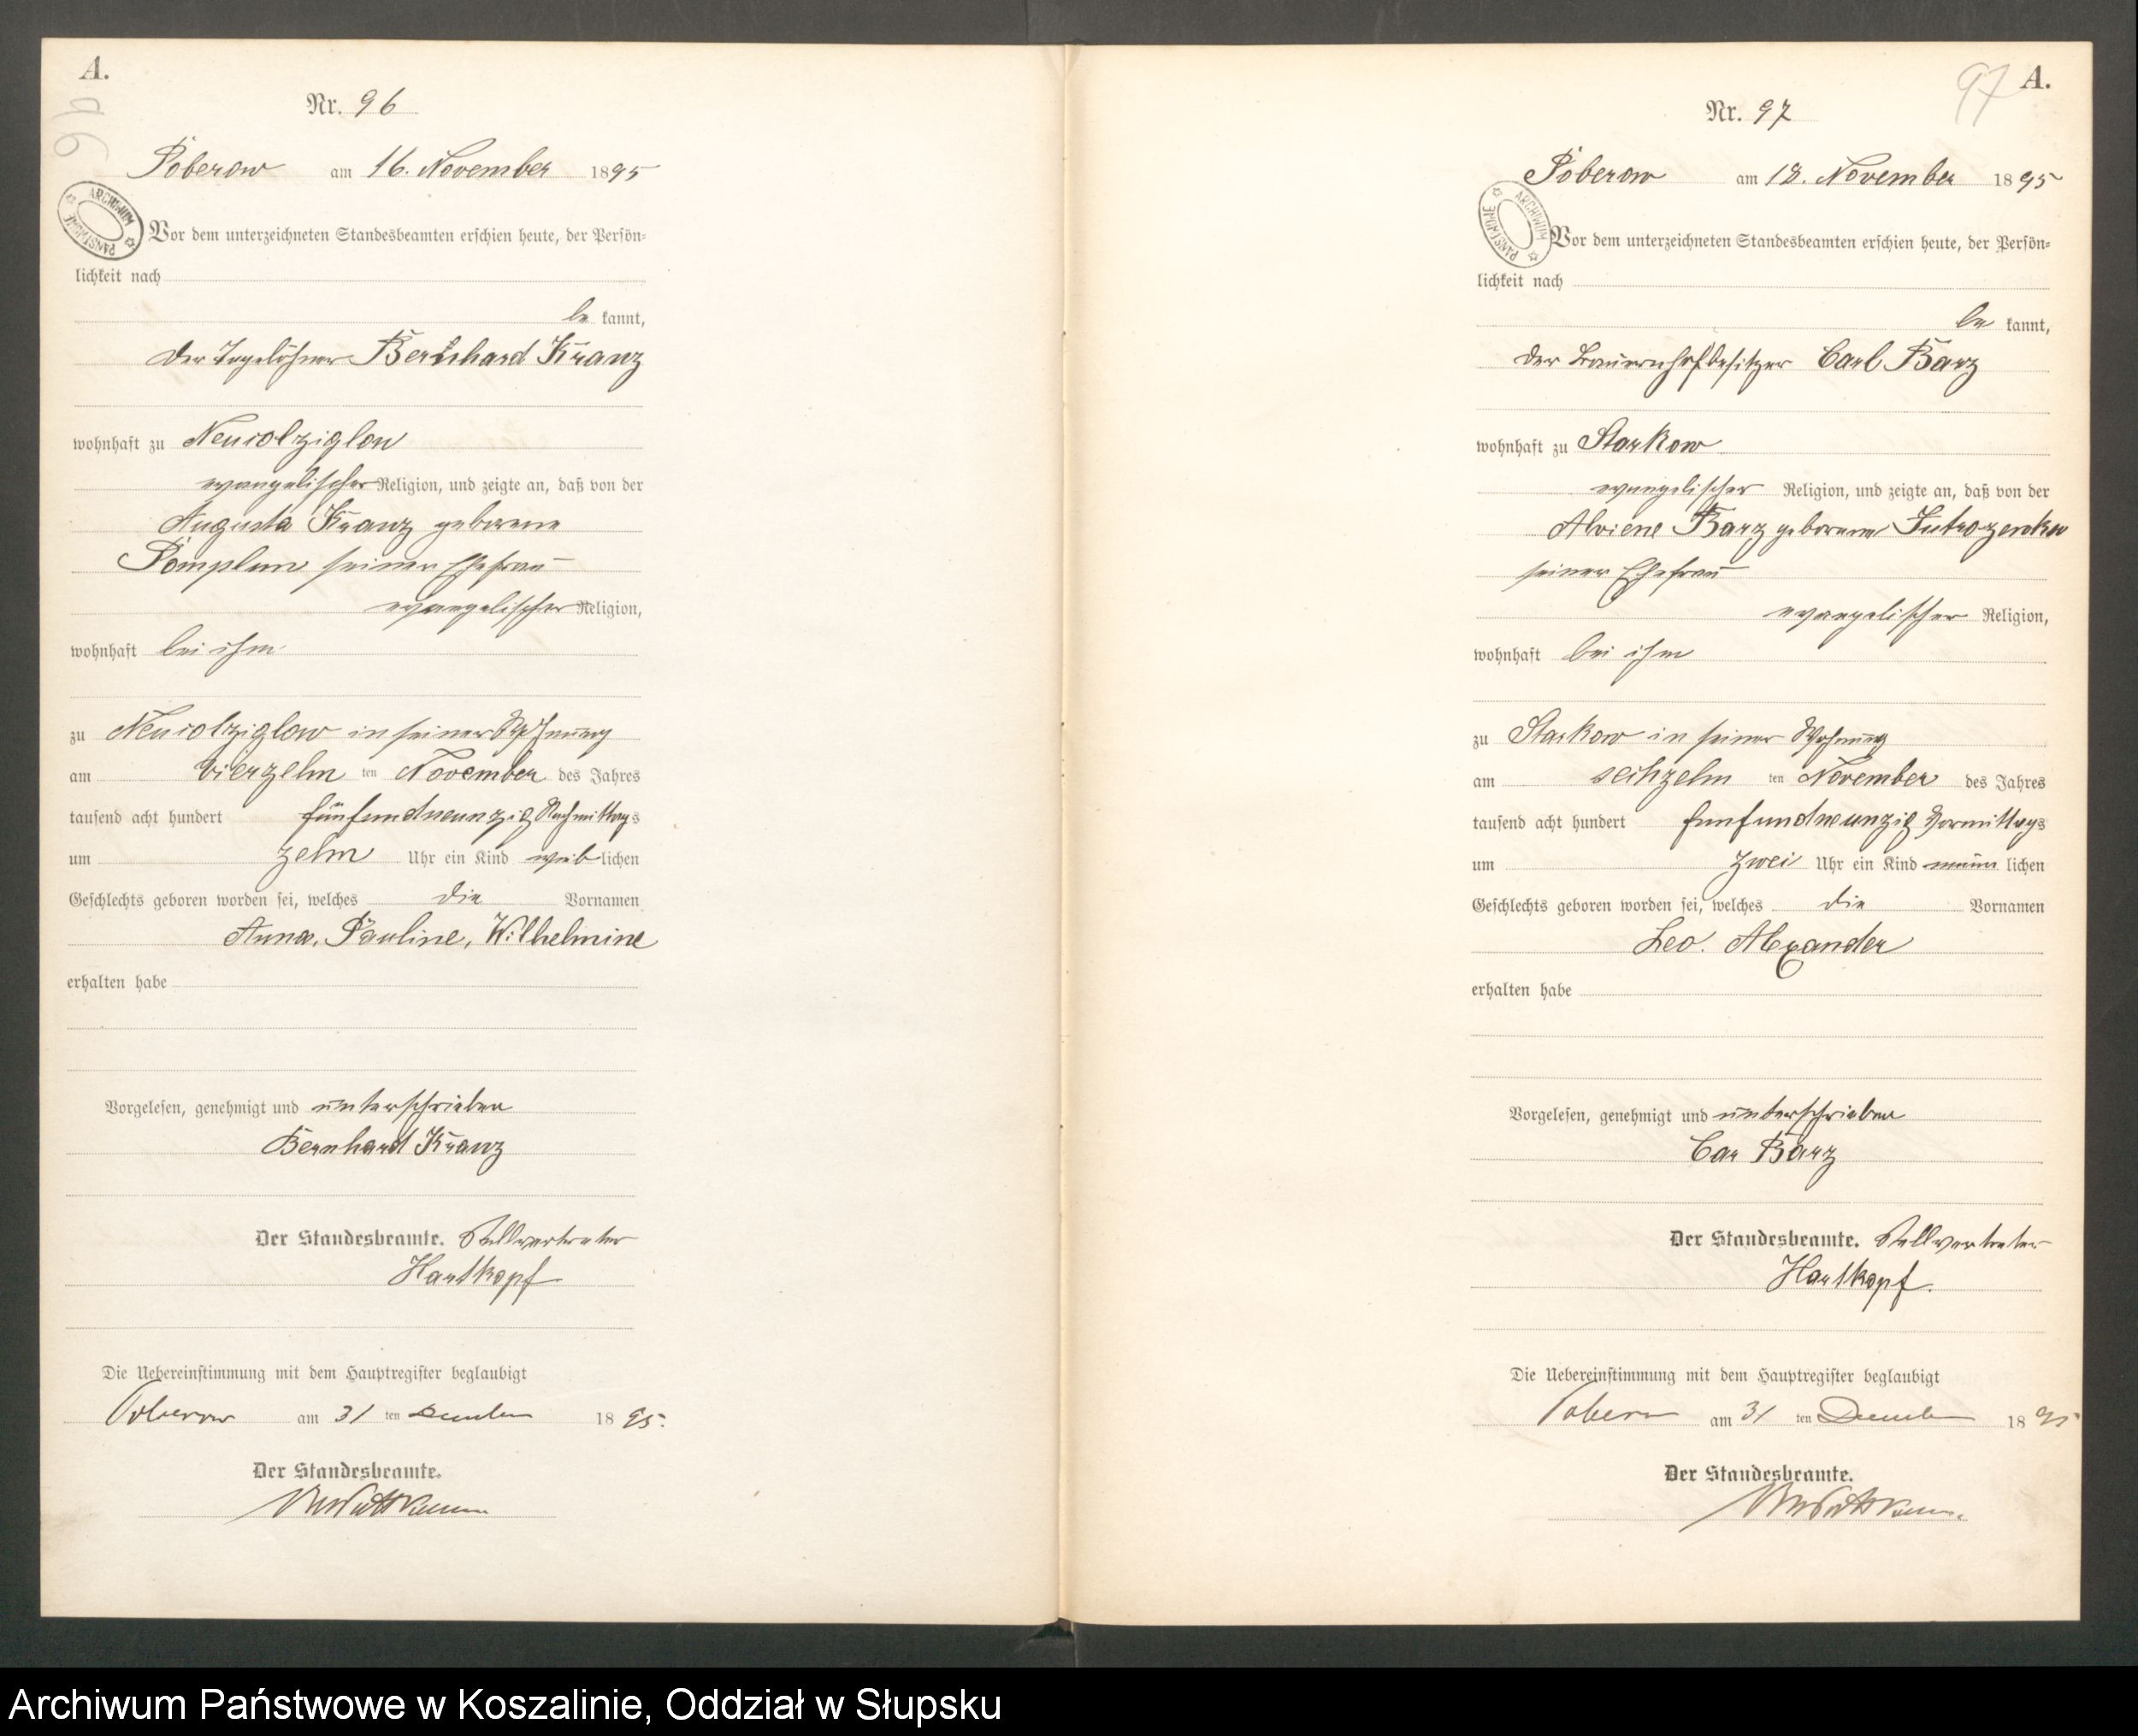 A.
96
Nr. 96
Poberow am 16. November 1895
ARCHIWUM PAŃSTWOWE
Vor dem unterzeichneten Standesbeamten erschien heute, der Persön=
lichkeit nach
be kannt,
der Tagelöhner Bernhard Kranz
wohnhaft zu Neucolziglow
evangelischer Religion, und zeigte an, daß von der
Augusta Kranz geborene
Pomplun seiner Ehefrau
evangelischer Religion,
wohnhaft bei ihm
zu Neucolziglow in seiner Wohnung
am vierzehn ten November des Jahres
tausend acht hundert fünfundneunzig Nachmittags
um zehn Uhr ein Kind weib lichen
Geschlechts geboren worden sei, welches die Vornamen
Anna, Pauline, Wilhelmine
erhalten habe
Vorgelesen, genehmigt und unterschrieben
Bernhard Kranz
Der Standesbeamte. Stellvertreter
Hartkopf
Die Uebereinstimmung mit dem Hauptregister beglaubigt
Poberow am 31 ten December 1895.
Der Standesbeamte.
97 A.
Nr. 97
Poberow am 18. November 1895
ARCHIWUM PAŃSTWOWE
Vor dem unterzeichneten Standesbeamten erschien heute, der Persön=
lichkeit nach
be kannt,
der Bauernhofbesitzer Carl Barz
wohnhaft zu Starkow
evangelischer Religion, und zeigte an, daß von der
Alviene Barz geborene
seiner Ehefrau
evangelischer Religion,
wohnhaft bei ihm
zu Starkow in seiner Wohnung
am sechzehn ten November des Jahres
tausend acht hundert fünfundneunzig Vormittags
um zwei Uhr ein Kind männ lichen
Geschlechts geboren worden sei, welches die Vornamen
Leo. Alexander
erhalten habe
Vorgelesen, genehmigt und unterschrieben
Car Barz
Der Standesbeamte. Stellvertreter
Hartkopf.
Die Uebereinstimmung mit dem Hauptregister beglaubigt
Poberow am 31 ten December 1895
Der Standesbeamte.
Archiwum Państwowe w Koszalinie, Oddział w Słupsku